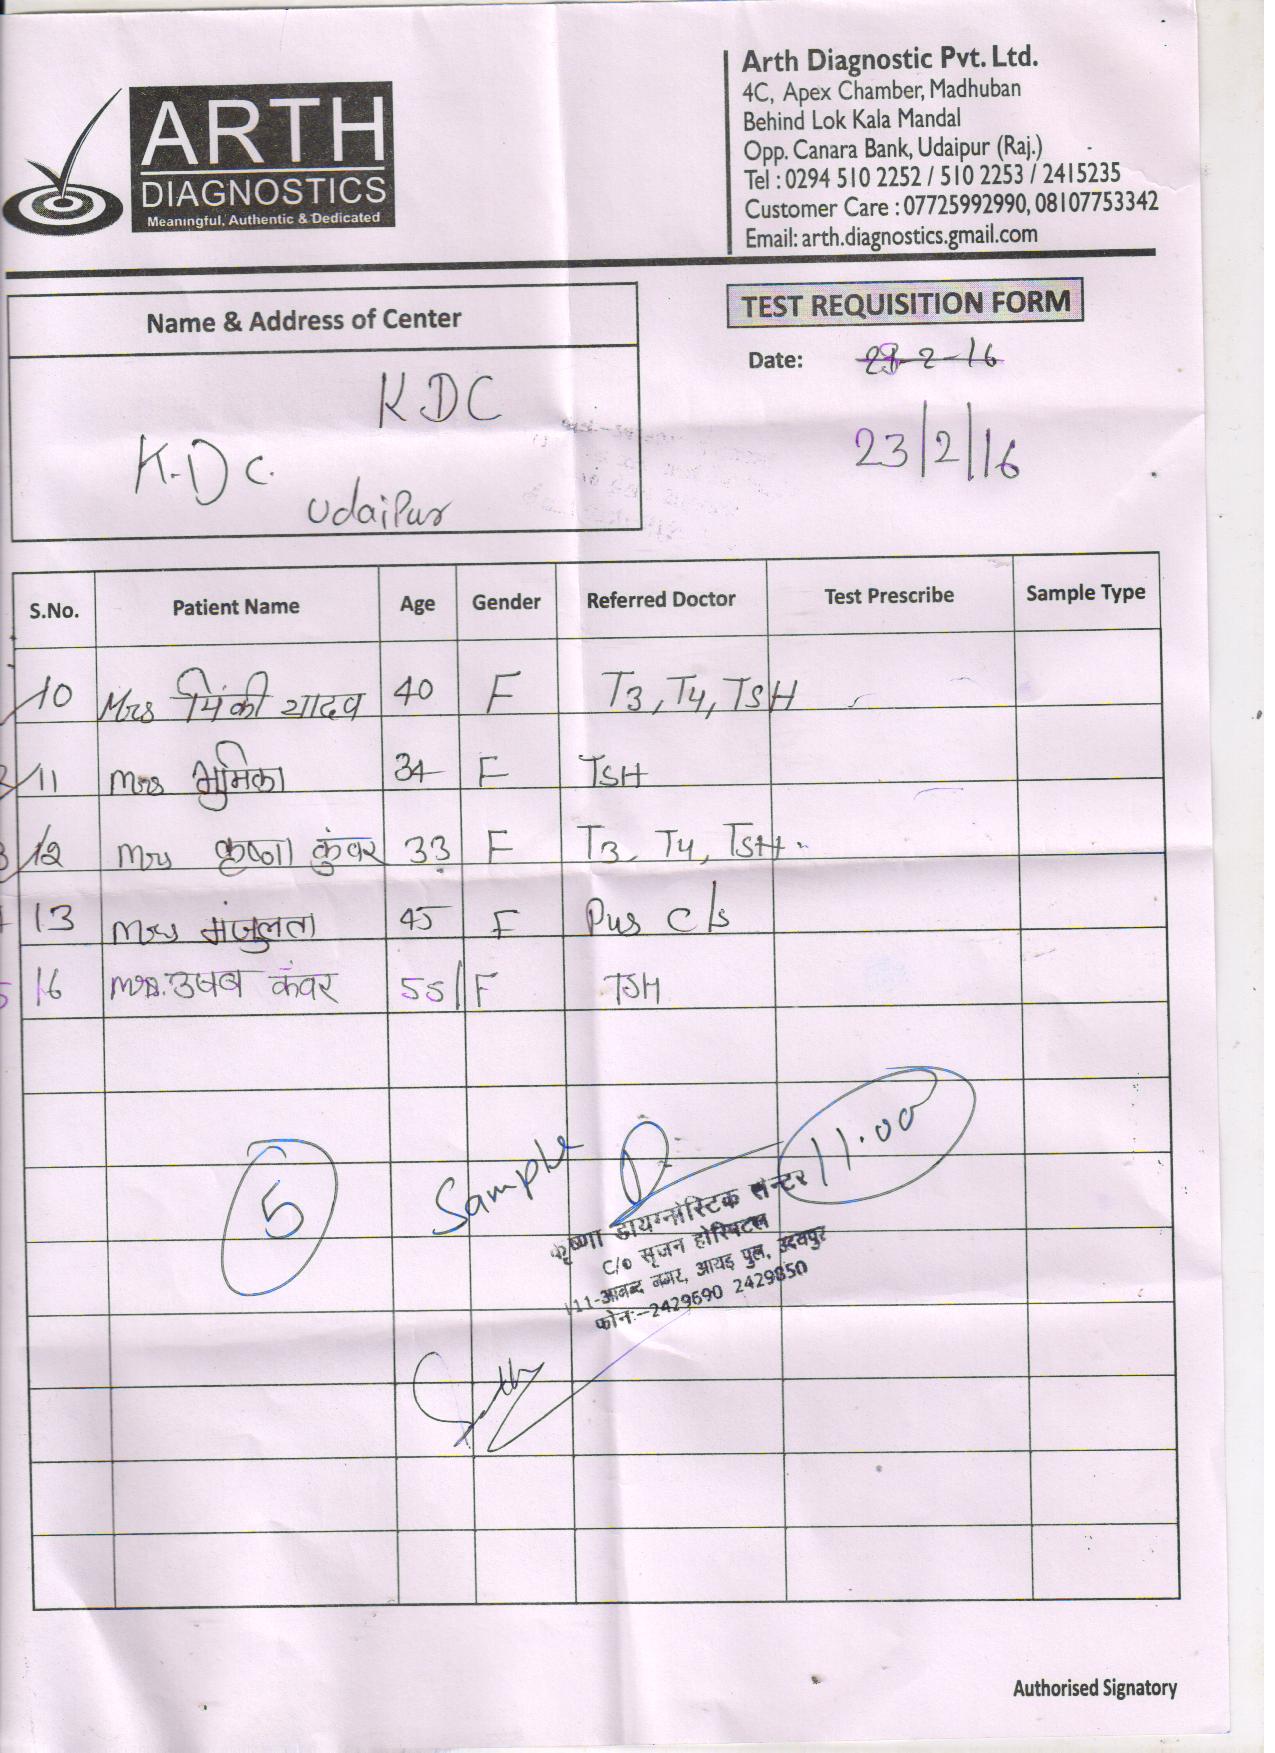 ARTH
DIAGNOSTICS
Meaningful, Authentic & Dedicated
Arth Diagnostic Pvt. Ltd.
4C, Apex Chamber, Madhuban
Behind Lok Kala Mandal
Opp. Canara Bank, Udaipur (Raj.)
Tel : 0294 510 2252 / 510 2253 / 2415235
Customer Care : 07725992990, 08107753342
Email: arth.diagnostics.gmail.com
Name & Address of Center
KDC
K.D C.
Udaipur
TEST REQUISITION FORM
Date: 23-2-16
23/2/16
S.No. Patient Name Age Gender Referred Doctor Test Prescribe Sample Type
10 Mrs पिंकी यादव 40 F T3, T4, TSH
11 Mrs भुमिका 34 F TSH
12 Mrs कृष्णा कुंवर 33 F T3, T4, TSH
13 Mrs मंजुलता 45 F Pus c/s
16 Mrs. कंवर 55/F TSH
5
Sample
11.00
कृष्णा डायग्नोस्टिक सेन्टर
C/o सृजन होस्पिटल
111-आनन्द नगर, आयड़ पुल, उदयपुर
फोन:-2429690 2429850
Authorised Signatory